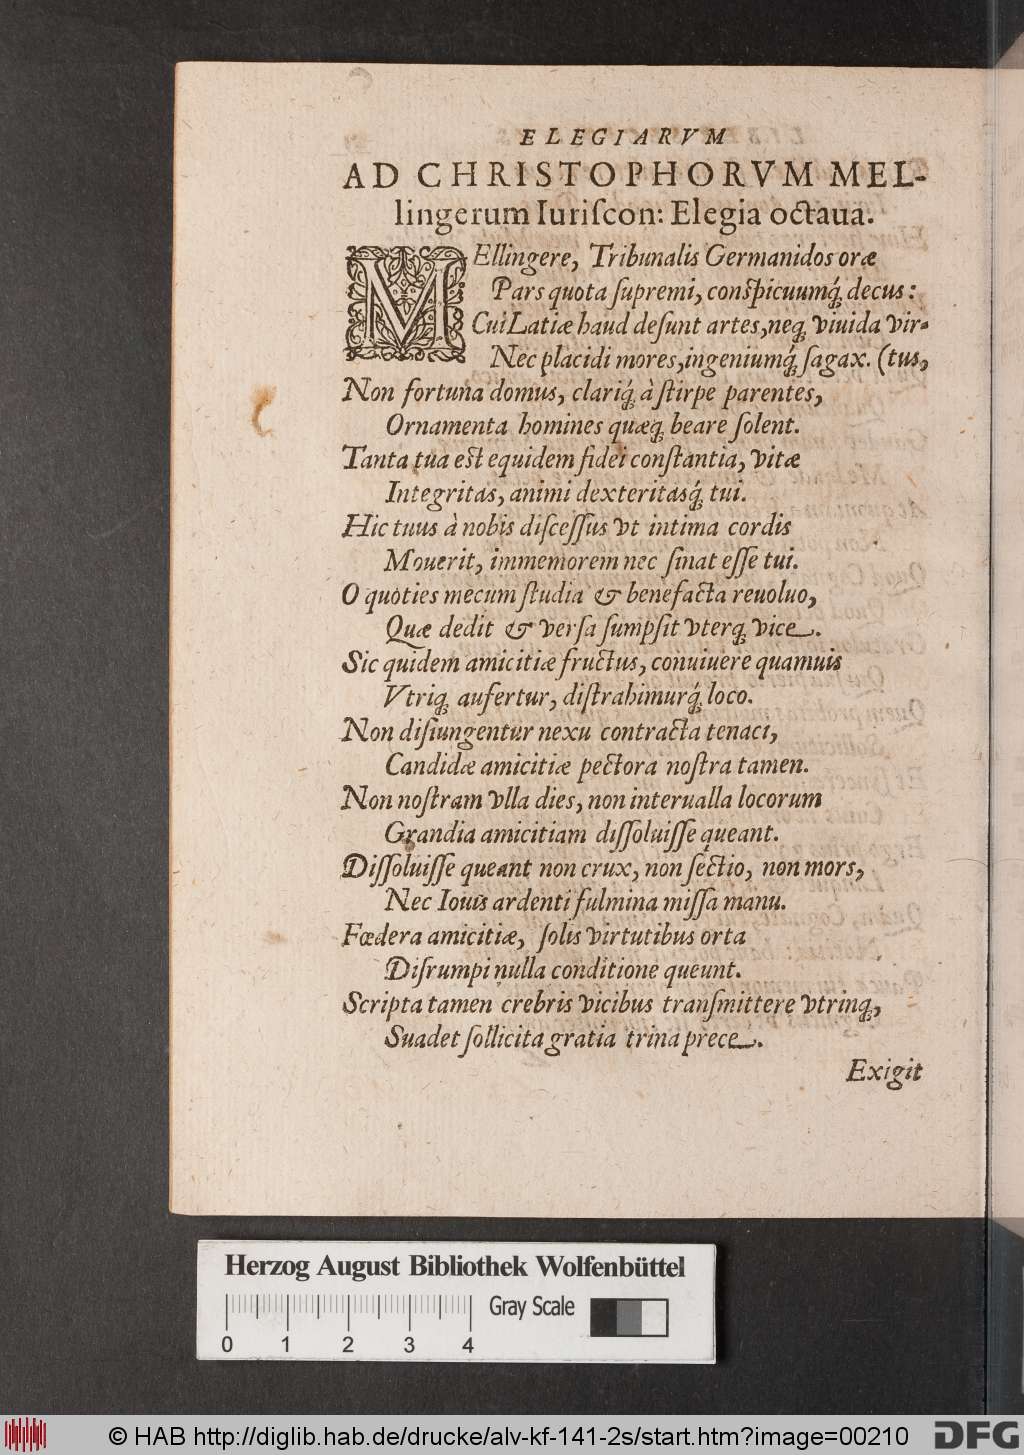 ELEGIARVM
AD CHRISTOPHORVM MEL-
lingerum Iuriſcon: Elegia octaua.
MEllingere, Tribunalis Germanidos oræ
Pars quota ſupremi, conſpicuumq́; decus:
Cui Latiæ haud deſunt artes, neq; viuida vir-
Nec placidi mores, ingeniumq́; ſagax. (tus,
Non fortuna domus, clariq́; à ſtirpe parentes,
Ornamenta homines quæq; beare ſolent.
Tanta tua est equidem fidei conſtantia, vitæ
Integritas, animi dexteritasq́; tui.
Hic tuus à nobis diſceſſus vt intima cordis
Mouerit, immemorem nec ſinat eſſe tui.
O quoties mecum ſtudia & benefacta reuoluo,
Quæ dedit & verſa ſumpſit vterq; vice.
Sic quidem amicitiæ fructus, conuiuere quamuis
Vtriq; aufertur, diſtrahimurq́; loco.
Non diſiungentur nexu contracta tenaci,
Candidæ amicitiæ pectora noſtra tamen.
Non noſtram vlla dies, non interualla locorum
Grandia amicitiam diſſoluiſſe queant.
Diſſoluiſſe queant non crux, non ſectio, non mors,
Nec Iouis ardenti fulmina miſſa manu.
Fœdera amicitiæ, ſolis virtutibus orta
Diſrumpi nulla conditione queunt.
Scripta tamen crebris vicibus tranſmittere vtrinq;,
Suadet ſollicita gratia trina prece.
Exigit
Herzog August Bibliothek Wolfenbüttel
Gray Scale
0 1 2 3 4
© HAB http://diglib.hab.de/drucke/alv-kf-141-2s/start.htm?image=00210
DFG